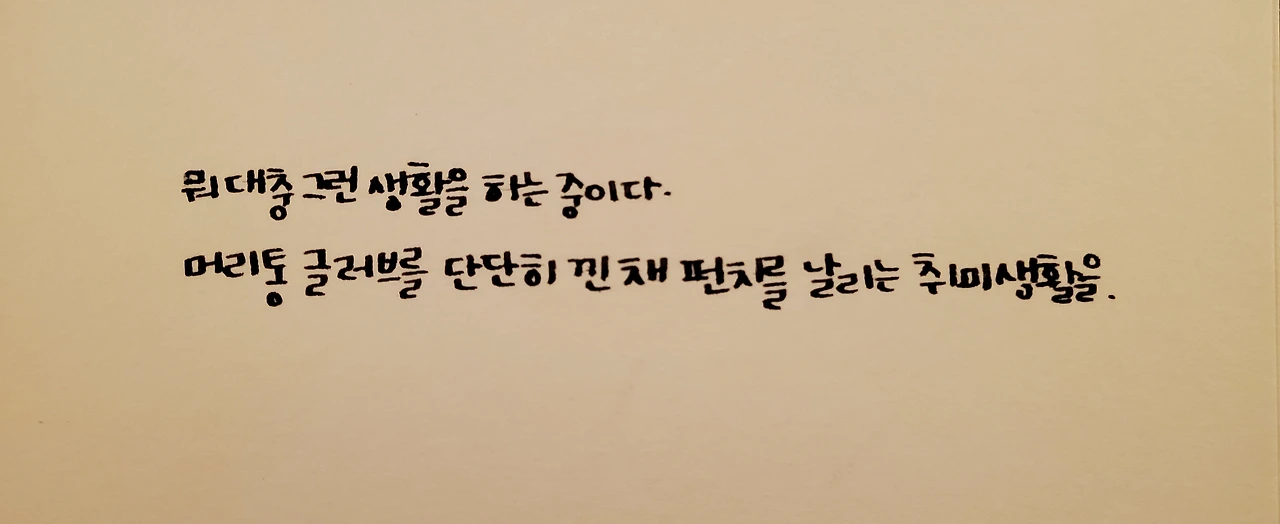 뭐 대충 그런 생활을 하는 중이다.
머리통 글러브를 단단히 낀 채 펀치를 날리는 취미생활을.